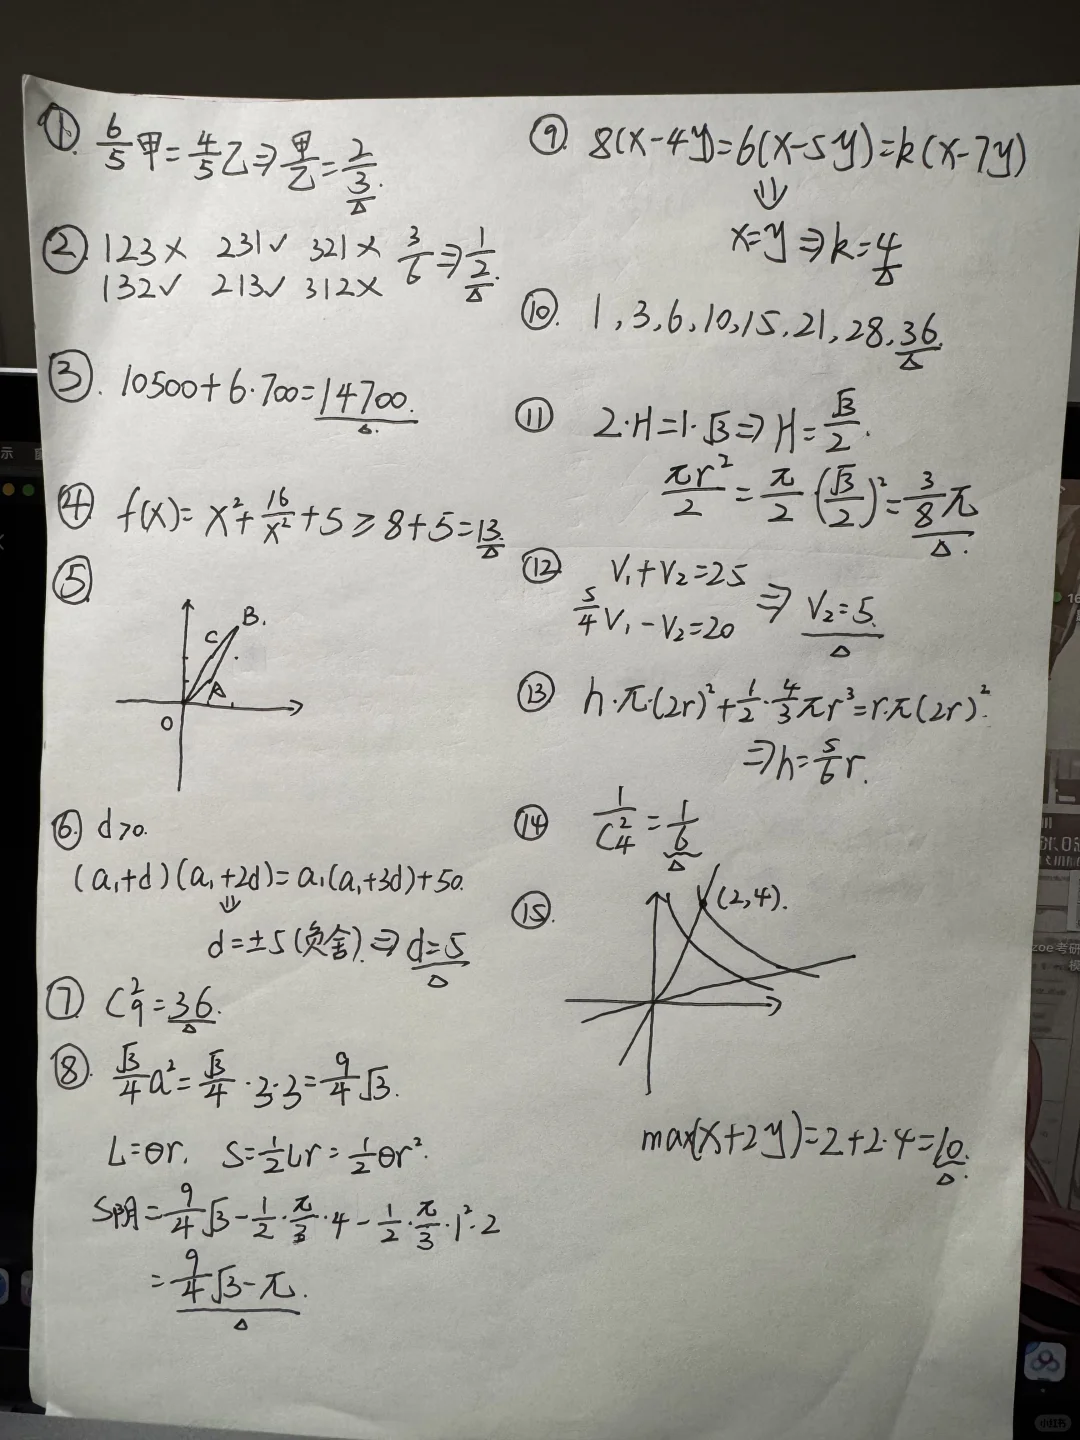 ① 6/5甲=4/5乙⇒甲/乙=2/3.
② 123× 231✓ 321× 3/6⇒1/2.
132✓ 213✓ 312×
③. 10500+6·700=14700.
④ f(x)=x²+16/x²+5≥8+5=13.
⑤
B.
C
A
O
⑥ d>0.
(a₁+d)(a₁+2d)=a₁(a₁+3d)+50.
⇓
d=±5(负舍).⇒d=5
⑦ C₉²=36.
⑧. √3/4a²=√3/4·3·3=9/4√3.
L=θr. S=1/2Lr=1/2θr².
S阴=9/4√3-1/2·π/3·4-1/2·π/3·1²·2
=9/4√3-π.
⑨. 8(x-4y)=6(x-5y)=k(x-7y)
⇓
x=y⇒k=4
⑩. 1,3,6,10,15,21,28,36.
⑪ 2·H=1·√3⇒H=√3/2.
πr²/2=π/2·(√3/2)²=3/8π.
⑫ V₁+V₂=25
5/4V₁-V₂=20 ⇒ V₂=5.
⑬ h·π·(2r)²+1/2·4/3πr³=r·π(2r)².
⇒h=5/6r.
⑭ 1/C₄²=1/6
⑮. (2,4).
max(x+2y)=2+2·4=10.
示
zoe考研
小红书